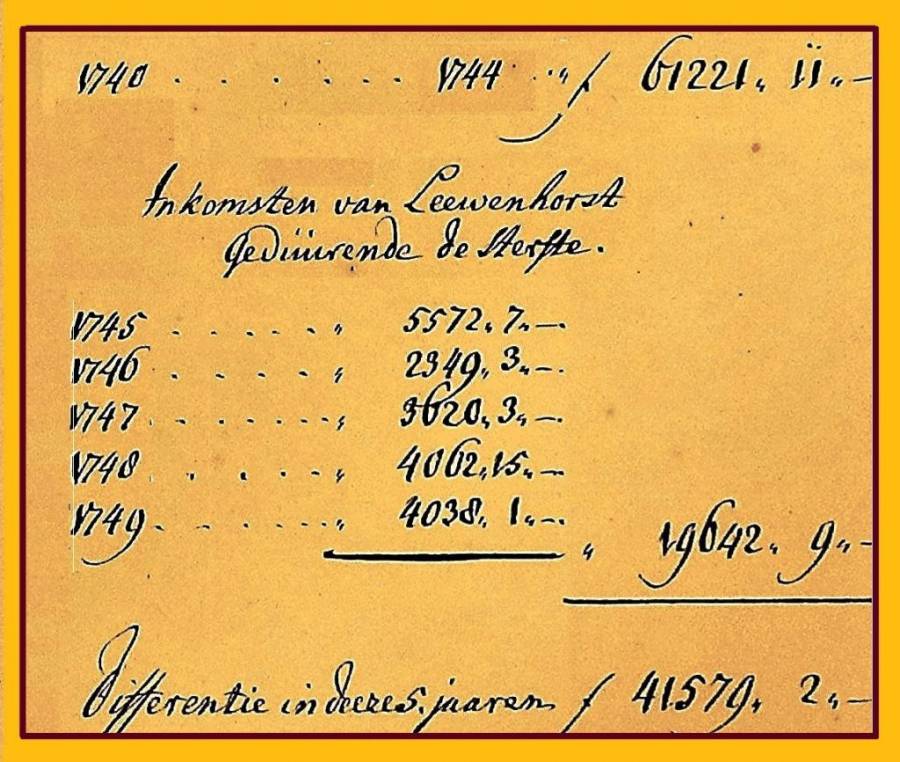 1740 . . . . . . 1744 . . „ ƒ 61221„ 11„ —
Inkomsten van Leewenhorst
Geduurende de Sterfte.
1745 . . . . . . „ 5572„ 7„ —.
1746 . . . . . „ 2349„ 3„ —.
1747 . . . . . . . „ 3620„ 3„ —.
1748 . . . . . „ 4062„ 15„ —
1749 . . . . . . . „ 4038„ 1„ —.
„ 19642„ 9„ —
Differentie in deeze 5. jaaren ƒ 41579„ 2„ —